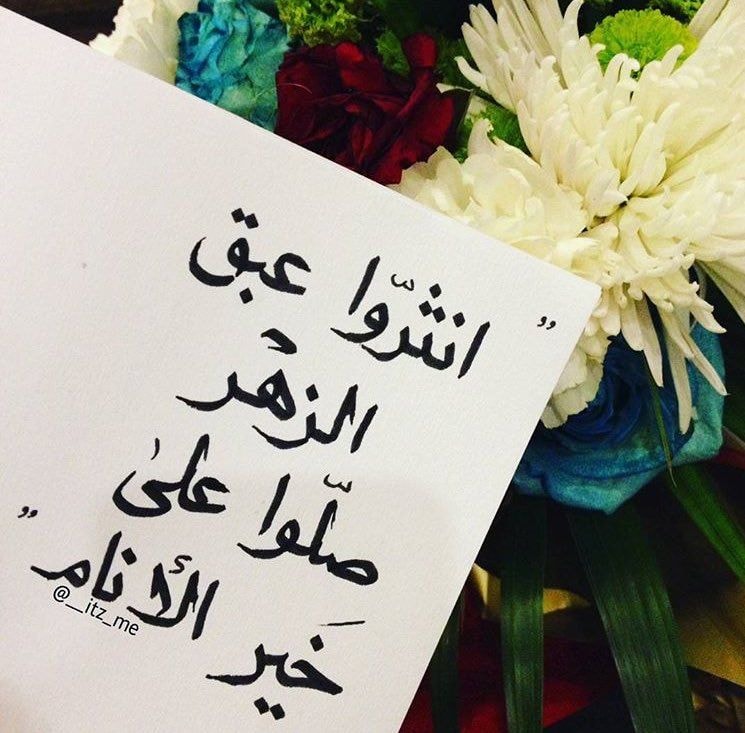 " انثرّوا عبق
الزهْر
صلّوا على
خَير الأنام "
@__itz_me